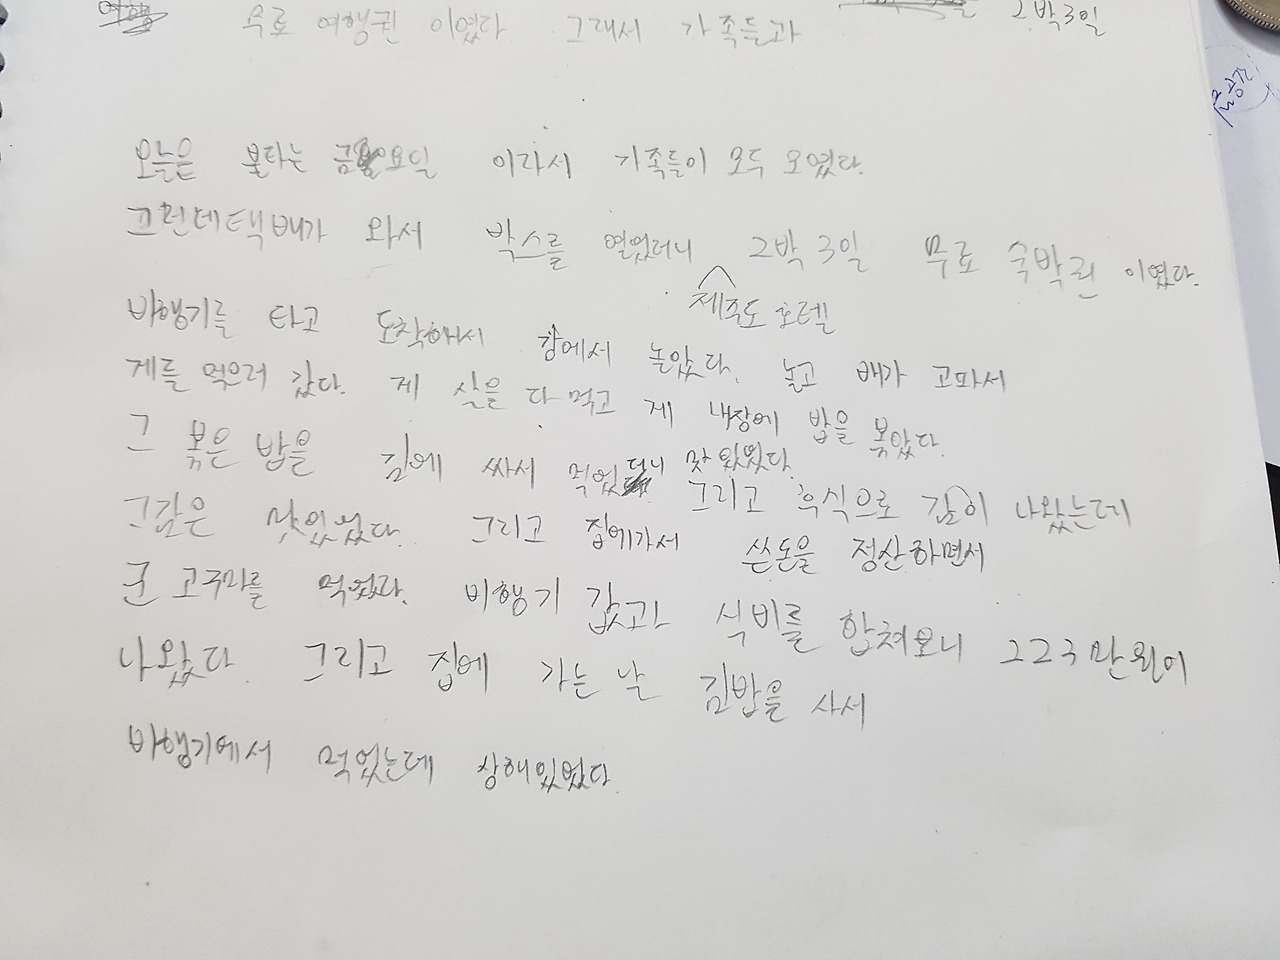 무료 여행권 이였다 그래서 가족들과 2박3일
오늘은 불타는 금요일 이라서 가족들이 모두 모였다.
그런데택배가 와서 박스를 열었더니 2박 3일 무료 숙박권 이였다.
제주도 호텔
비행기를 타고 도착해서 강에서 놀았다. 놀고 배가 고파서
게를 먹으러 갔다. 게 살을 다 먹고 게 내장에 밥을 볶았다.
그 볶은 밥을 김에 싸서 먹었더니 맛있었다.
그리고 후식으로 귤이 나왔는데
그귤은 맛있었다. 그리고 집에가서 쓴돈을 정산하면서
군 고구마를 먹었다. 비행기 값과 식비를 합쳐보니 223만원이
나왔다. 그리고 집에 가는 날 김밥을 사서
비행기에서 먹었는데 상해있었다.